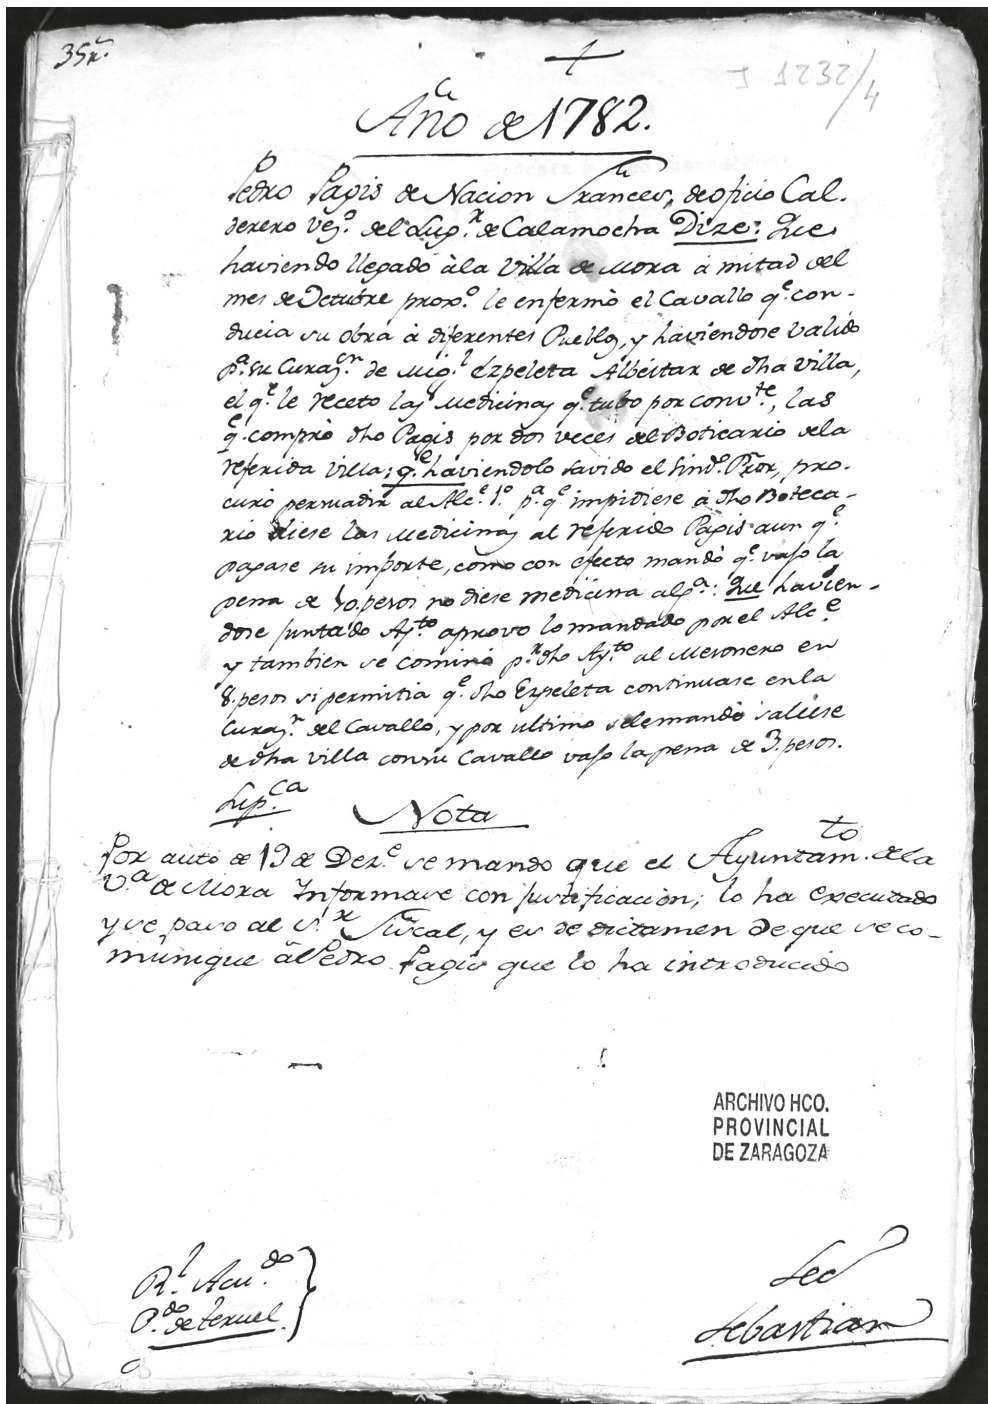 35r.
J 1232/4
Año de 1782.
Pedro Pagis de Nacion Frances, de oficio Cal-
derero vez.o del Lug.r de Calamocha Dize: Que
haviendo llegado à la Villa de Mora à mitad del
mes de Octubre prox.o le enfermò el Cavallo q.e con-
ducia su obra à diferentes Pueblos, y haviendose valido
p.a su Curaz.n de Mig.l Ezpeleta Albeitar de dha villa,
el q.e le receto las Medicinas q.e tubo por conv.te, las
q.e comprò dho Pagis por dos veces del Boticario dela
referida villa; q.e haviendolo savido el Sind.o Pror, pro-
curò persuadir al Alc.e 1.o p.a q.e impidiese à dho Boteca-
rio diese las Medicinas al referido Pagis aun q.e
pagase su importe, como con efecto mandò q.e vajo la
pena de 50. pesos no diese medicina alg.a: Que havien-
dose juntado Ay.to aprovo lo mandado por el Alc.e
y tambien se cominò p.r dho Ay.to al Mesonero en
8. pesos si permitia q.e dho Ezpeleta continuase en la
Curaz.n del Cavallo, y por ultimo se le mandò saliese
de dha villa con su Cavallo vajo la pena de 3. pesos.
Sup.ca
Nota
Por auto de 19 de Dez.e se mando que el Ayuntam.to dela
V.a de Mora Informase con justificacion; lo ha executado
y se paso al S.r Fiscal, y es de dictamen de que se co-
munique à Pedro Pagis que lo ha introducido
ARCHIVO HCO.
PROVINCIAL
DE ZARAGOZA
R.l Acu.do
P.do de Teruel.
Sec
Sebastian